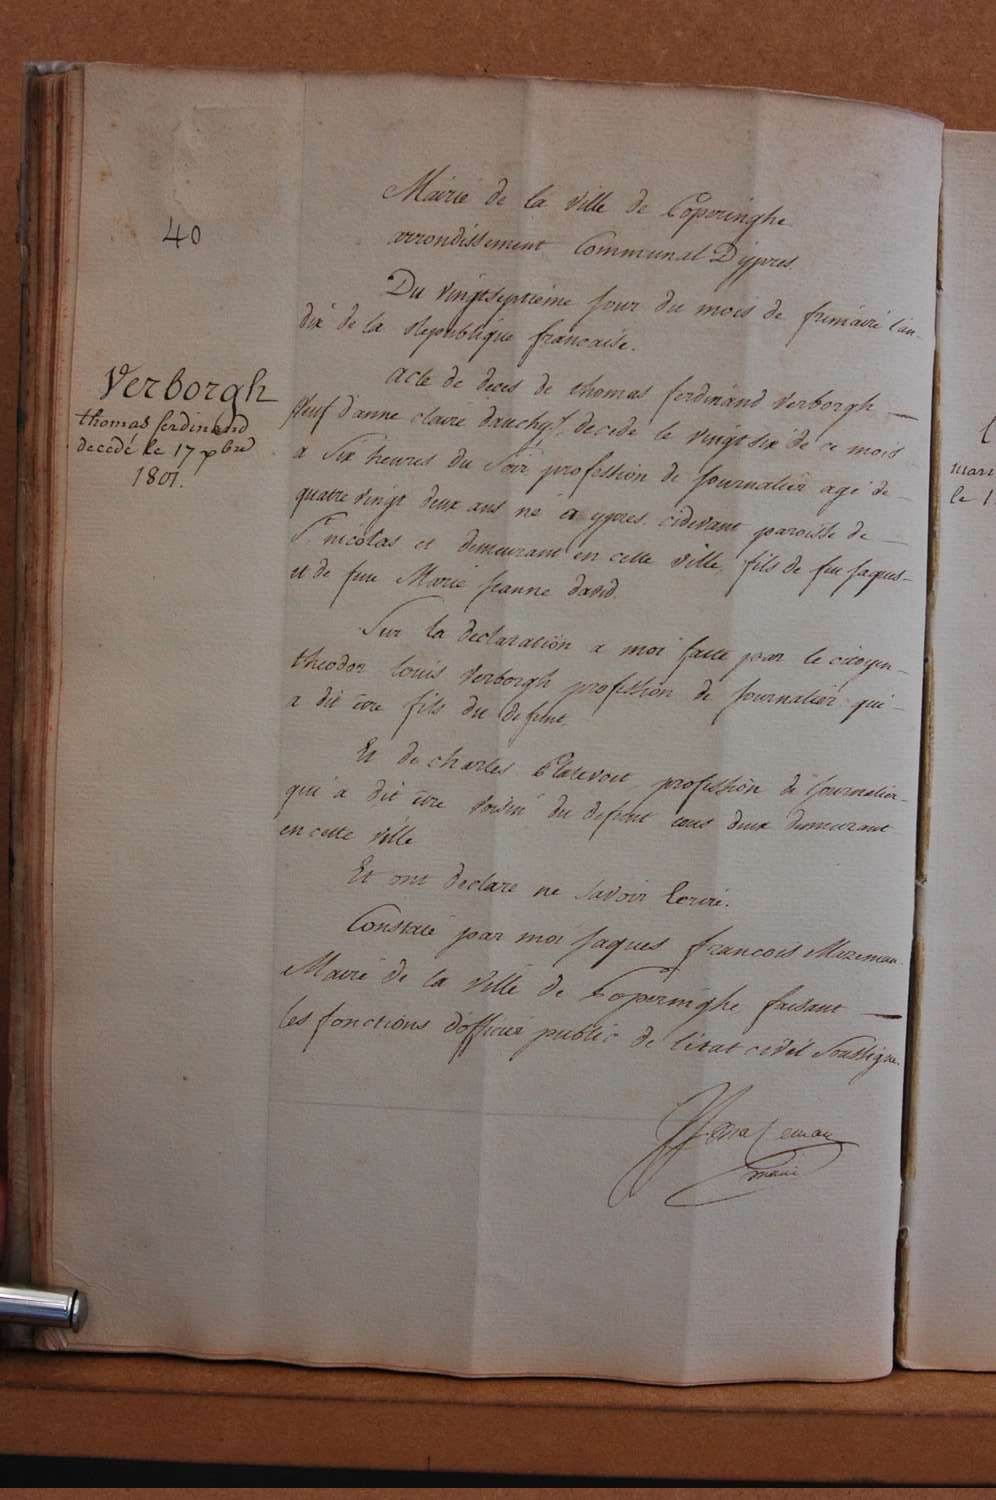 40
Verborgh
thomas ferdinand
decedé le 17 xbre
1801.
Mairie de la ville de Poperinghe
arrondissement Communal D'ypres.
Du vingtseptieme jour du mois de frimaire l'an
dix de la Republique francaise.
Acte de deces de thomas ferdinand verborgh
veuf d'anne claire decedé le vingt six de ce mois
a Six heures du Soir, profession de Journalier agé de
quatre vingt deux ans né a ypres cidevant paroisse de
St nicolas et demeurant en cette ville, fils de feu Jaques
et de feue Marie Jeanne david.
Sur la declaration a moi faite par le citoyen
theodor louis verborgh profession de Journalier qui
a dit être fils du defunt.
Et de charles profession de Journalier
qui a dit être voisin du defunt tous deux demeurant
en cette ville
Et ont declare ne savoir Ecrire.
Constaté par moi Jaques francois Mazeman
Maire de la ville de Poperinghe faisant
les fonctions d'officier public de l'etat civil Soussigne.
mazeman
maire
mari
le 1